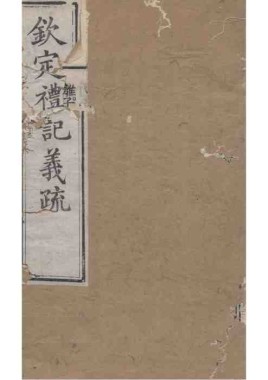 欽定禮記義疏